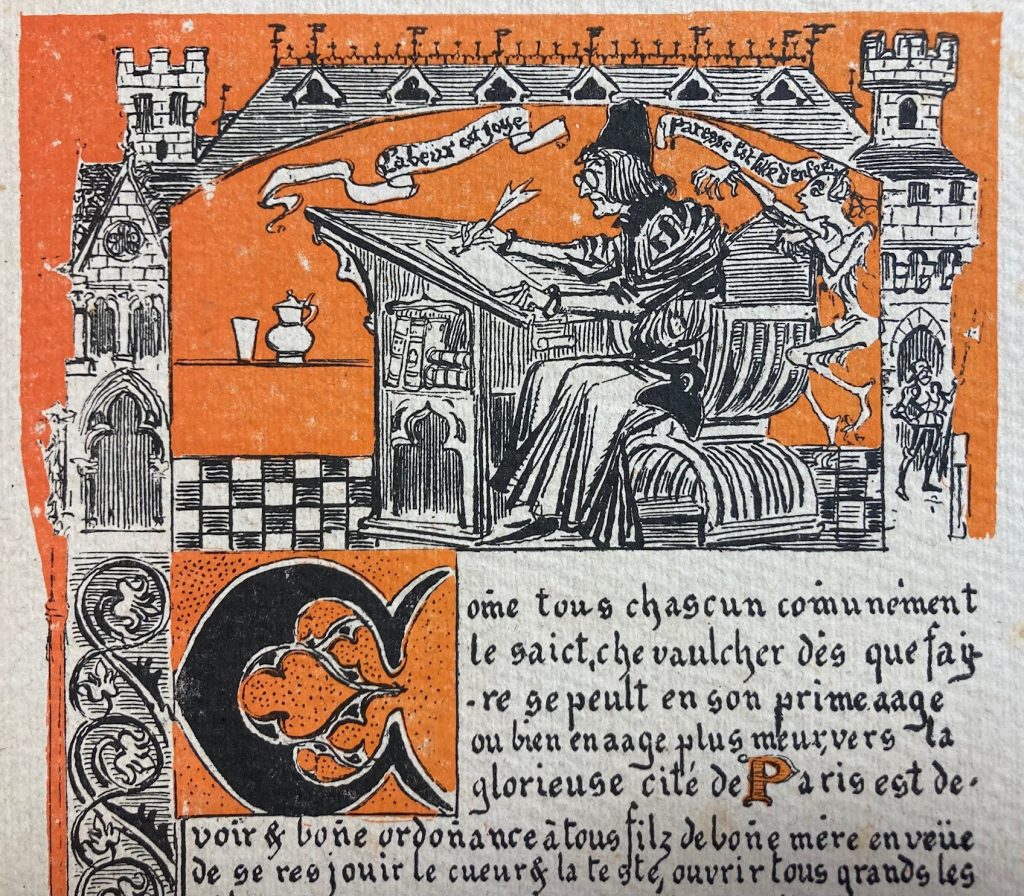 Labeur est joye
Paresse est d'enfer
Come tous chascun comunément
le saict, chevaulcher dès que fay-
-re se peult en son prime aage
ou bien en aage plus meur, vers la
glorieuse cité de Paris est de-
voir & boñe ordoñance à tous filz de boñe mère en veüe
de se resjouir le cueur & la teste, ouvrir tous grands les